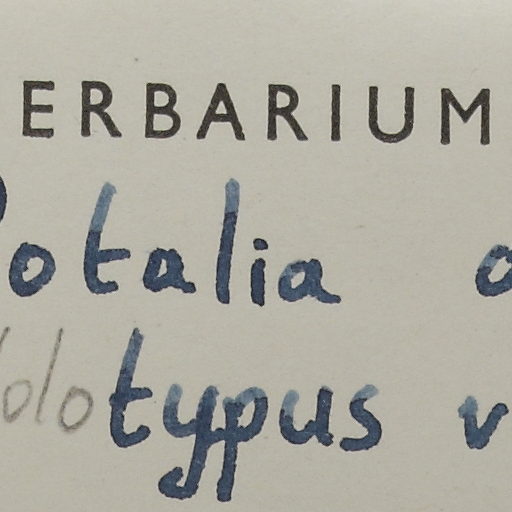 ERBARIUM
otalia
olotypus v